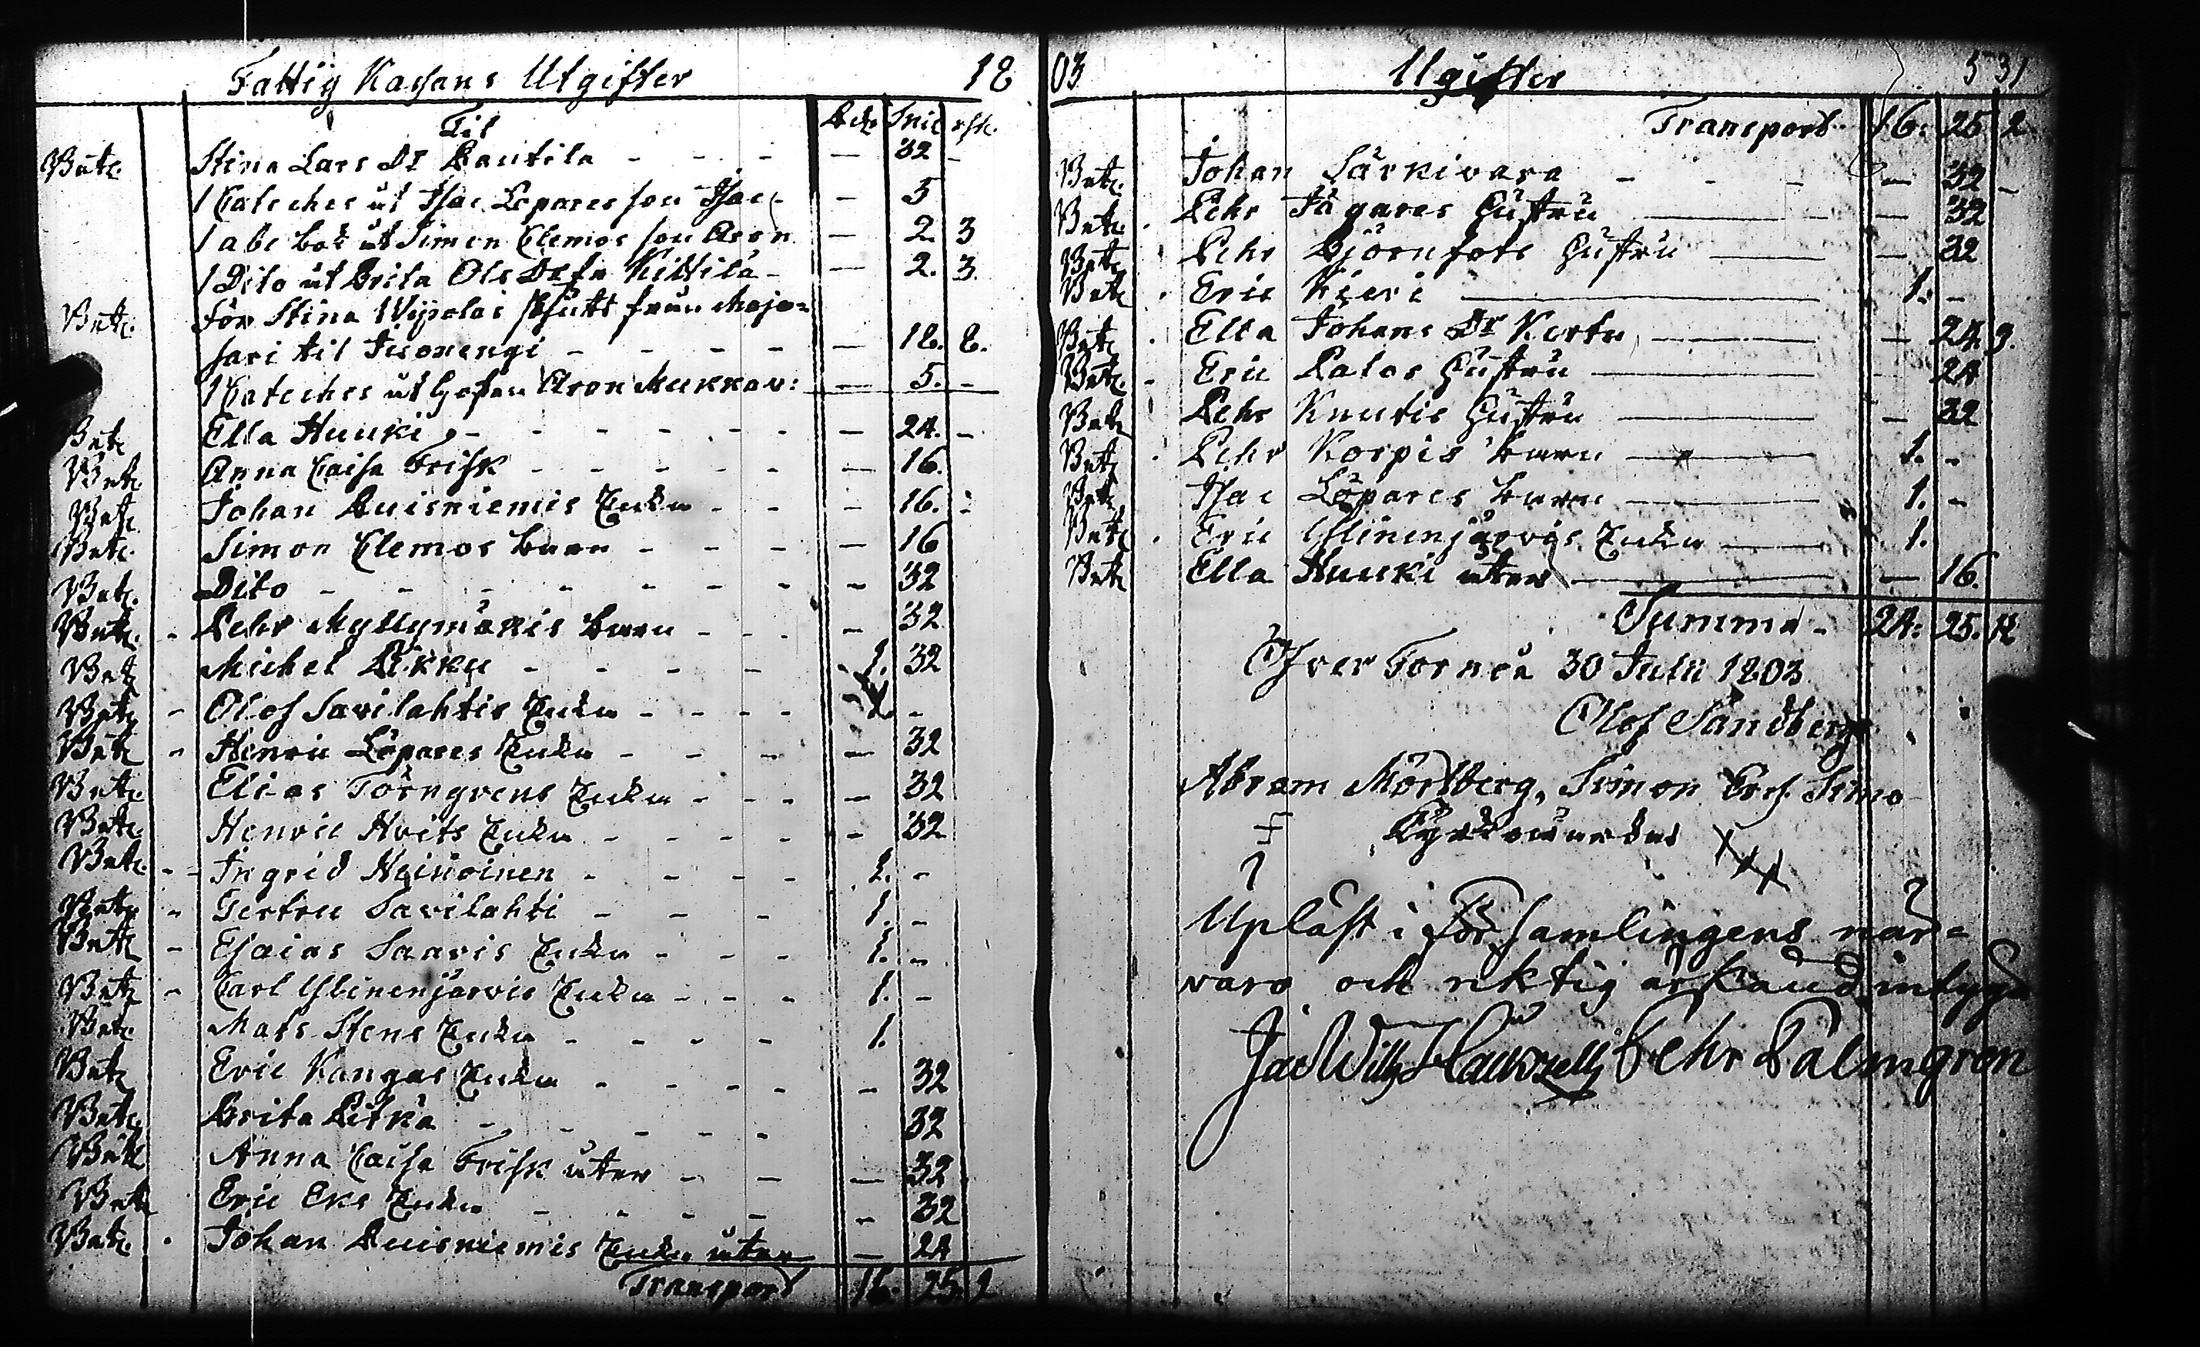 Fattig Kassans Utgifter 18
Til Rdr Skil rst.
Bet. Stina Lars Dr Rautila - - - — 32 -
1 Cateches åt Isac Löpares son Isac — 5
1 abc bok åt Simon Clemos son Aron — 2. 3
1 Dito åt Brita Ols Dr fr Kittilä — 2. 3.
Bet. för Stina skjuts från Majo=
sari til Tuonengi - - - - — 18. 8.
1 Cateches åt Gossen Aron Mukkav: — 5. -
Bet. Ella Huuki - - - - - — 24. -
Bet. Anna Caisa Frisk - - - - - — 16.
Bet. Johan Ruisniemis Enka - - - 16. -
Bet. Simon Clemos barn - - - - — 16
Bet. Dito - - - - - - - - 32
Bet. Pehr Myllymäkis barn - - - - 32
Bet. Michel Pikku - - - - 1. 32
Bet. Olof Savilahtis Enka - - - -
Bet. Henric Löpares Enka - - - — 32
Bet. Elias Törngrens Enka - - - — 32
Bet. Henric Hvits Enka - - - - - 32
Bet. Ingrid Heinoinen - - - - 1. -
Bet. Gertru Savilahti - - - 1. -
Bet. Esaias Saaris Enka - - - 1. -
Bet. Carl Ylinenjärvis Enka - - - 1. -
Bet. Mats Stens Enka - - - - 1.
Bet. Eric Kangas Enka - - - - - 32
Bet. Brita Pitkä - - - - - 32
Bet. Anna Caisa Frisk åter - - — 32
Bet. Eric Eks Enka - - - - - 32
Bet. Johan Ruisniemis Enka åter — 24
Transport 16. 25. 2
03 Ugifter 531
Transport 16. 25 2
Bet. Johan Särkivara - - - - 32 -
Bet. Pehr Jägares Hustru — 32
Bet. Pehr Björnfots Hustru — 32
Bet. Eric Kieri — 1. -
Bet. Ella Johans Dr Kortn — 24. 3.
Bet. Eric Palos Hustru — 24
Bet. Pehr Knutis Hustru — 32
Bet. Pehr Korpis barn — 1. -
Bet. Isac Löpares barn — 1. -
Bet. Eric Ylinenjärvis Enka — 1.
Bet. Ella Huuki åter — 16.
Summa - 24. 25. 12
Öfver Torneå 30 Julii 1803
Olof Sandberg
Abram Mörtberg, Simon Simo
Kyrkovärdar
Upläst i Församlingens när=
varo och riktig ärkänd, intyga
Pehr Palmgren